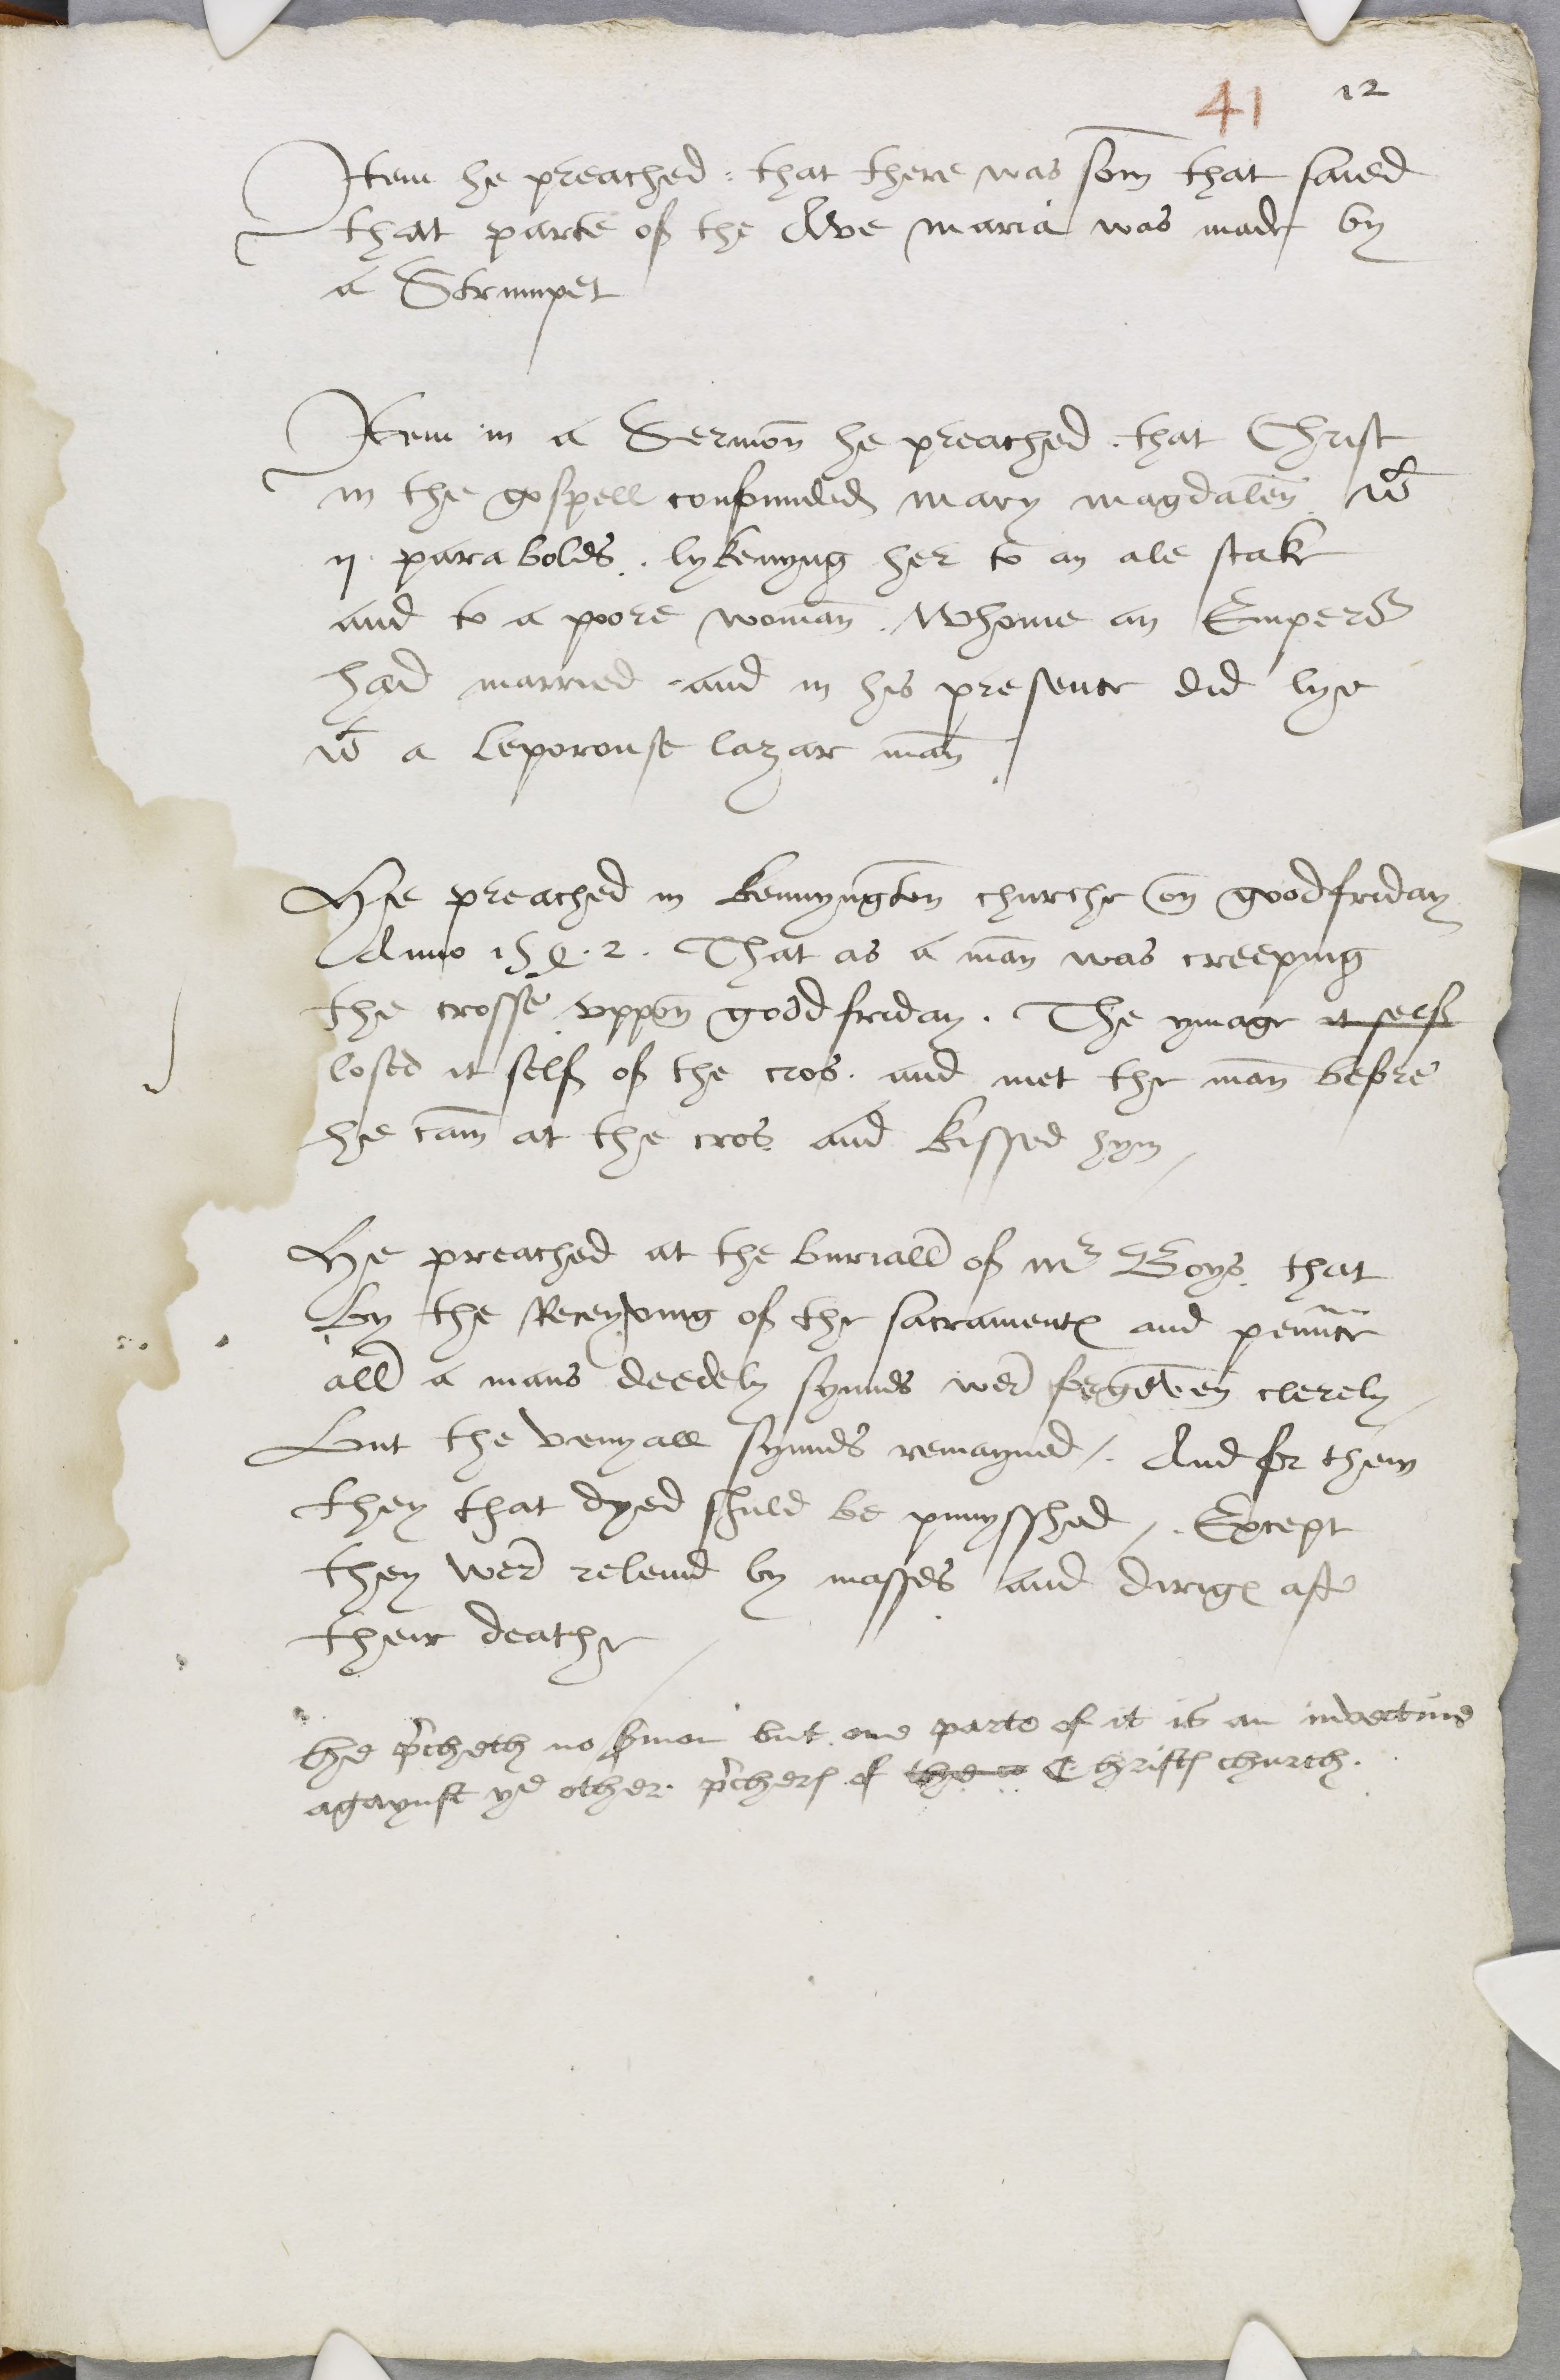 41 12
Item he preached . that there was som̄ that saied
that parte of the Ave maria was made by
a Strumpet
Item in a Sermon̄ he preached . that Christ
in the gospell confounded mary magdalen̄ wt
ij parabolds . lykenyng her to an ale stake
and to a poore woman̄ . Whome an Emperor
had married . and in his presence did lye
wt a leporouse lazar man̄
He preached in kennyngton churche on goodfriday
Anno 154.2. That as a man̄ was creeping
the crosse uppon̄ goodfriday . The ymage it self
losed it self of the cros . and met the man̄ before
he cam̄ at the cros and kissed hym
He preached at the buriall of mr Boys that
By the Receyving of the sacramentes and pennce
all a mans deedely synnds wer forgeven clerely
But the venyall synnds remayned /. And for them
they that dyed shuld be punysshed /. Except
they wer relevid by masses and diriges aft
their deathe
he p'cheth no s'mon but one parte of it is an invectiue
agaynst ye other p'chers of the Christes church .